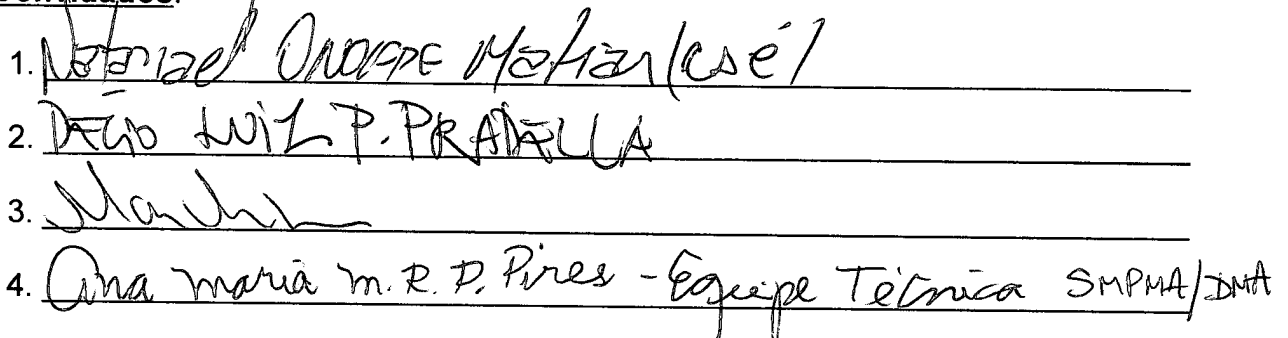 Convidados:
1. Natanael Onofre Matias (csé)
2. DÉCIO LUIZ P. PRADELLA
3.
4. Ana Maria M. R. D. Pires - Equipe Técnica SMPMA/DMA